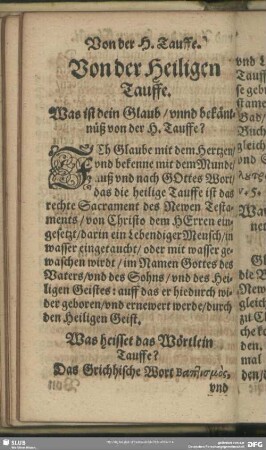 Von der H. Tauffe.
Von der Heiligen
Tauffe.
Was ist dein Glaub / vnnd bekänt-
nüß von der H. Tauffe?
ICh Glaube mit dem Hertzen /
vnd bekenne mit dem Munde /
auß vnd nach GOttes Wort /
das die heilige Tauffe ist das
rechte Sacrament des Newen Testa-
ments / von Christo dem HErren ein-
gesetzt / darin ein Lebendiger Mensch / in
wasser eingetaucht / oder mit wasser ge-
waschen wirdt / im Namen Gottes des
Vaters / vnd des Sohns / vnd des Hei-
ligen Geistes: auff das er hiedurch wi-
der geboren / vnd ernewert werde / durch
den Heiligen Geist.
Was heisset das Wörtlein
Tauffe?
Das Grichische Wort Βαπτισμὸς,
vnd
SLUB
DFG